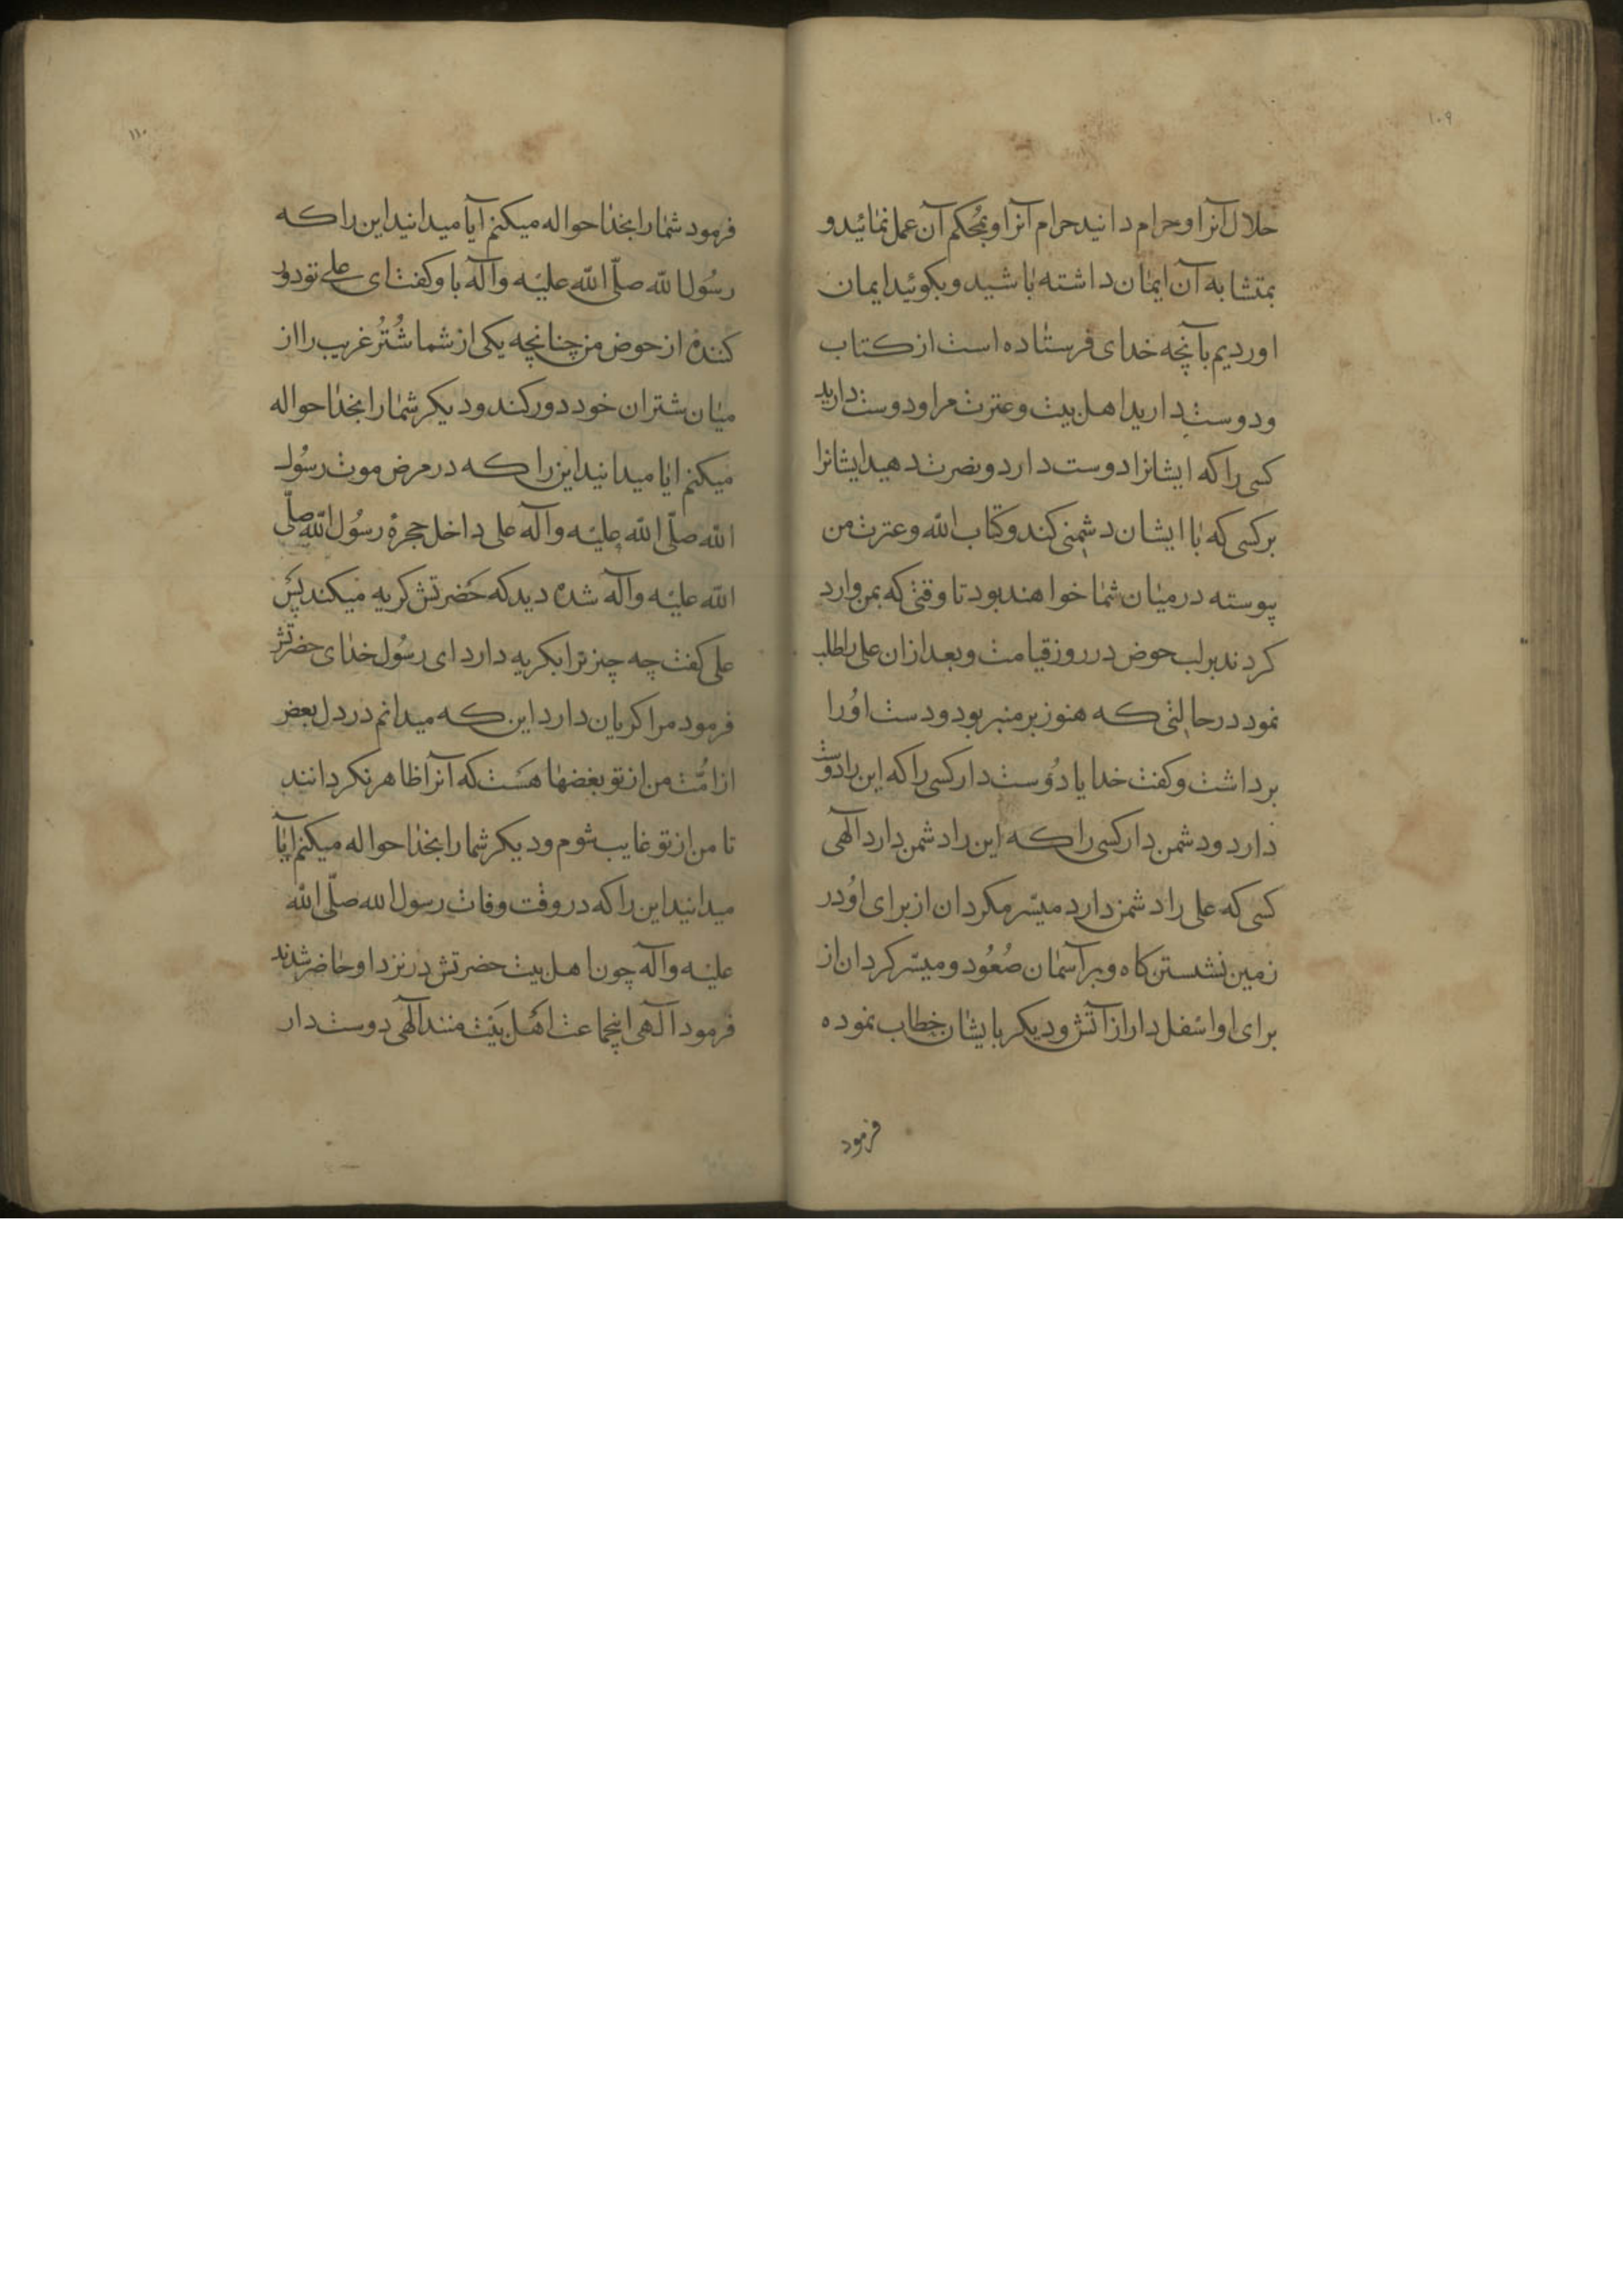 ۱۰۹
حلال آنرا و حرام دانید حرام آنرا و بمحکم آن عمل نمائید و
بمتشابه آن ایمان داشته باشید و بکوئید ایمان
اوردیم بآنچه خدای فرستاده است از کتاب
و دوست دارید اهل بیت و عترت مرا و دوست دارید
کسی را که ایشانرا دوست دارد و نصرت دهید ایشانرا
بر کسی که با ایشان دشمنی کند و کتاب الله و عترت من
پیوسته در میان شما خواهند بود تا وقتی که بمن وارد
کردند بر لب حوض در روز قیامت و بعد ازان علی را طلب
نمود در حالتی که هنوز بر منبر بود و دست اُورا
برداشت و کفت خدایا دوست دار کسی را که این را دوست
دارد و دشمن دار کسی را که این را دشمن دارد الهی
کسی که علی را دشمن دارد میسّر مکردان از برای اُو در
زمین نشستن کاه و بر آسمان صُعُود و میسّر کردان از
برای او اسفل دار از آتش و دیکر بایشان خطاب نموده
فرمود
۱۱۰
فرمود شما را بخدا حواله میکنم آیا میدانید این را که
رسُول الله صلّی الله علیه وآله باو کفت ای علی تو دور
کننده از حوض من چنانچه یکی از شما شُتُر غریب را از
میان شتران خود دور کند و دیکر شما را بخدا حواله
میکنم ایا میدانید این را که در مرض موت رسُول
الله صلّی الله علیه وآله علی داخل حجرهٔ رسُول الله صلّی
الله علیه وآله شده دید که حضرتش کریه میکند پس
علی کفت چه چیز ترا بکریه دارد ای رسُول خدای حضرتش
فرمود مرا کریان دارد این که میدانم در دل بعض
از امّت من از تو بغضها هست که آنرا ظاهر نکردانند
تا من از تو غایب شوم و دیکر شما را بخدا حواله میکنم ایا
میدانید این را که در وقت وفات رسول الله صلّی الله
علیه وآله چون اهل بیت حضرتش در نزد او حاضر شدند
فرمود الهی اینجماعت اهل بیت منند الهی دوست دار